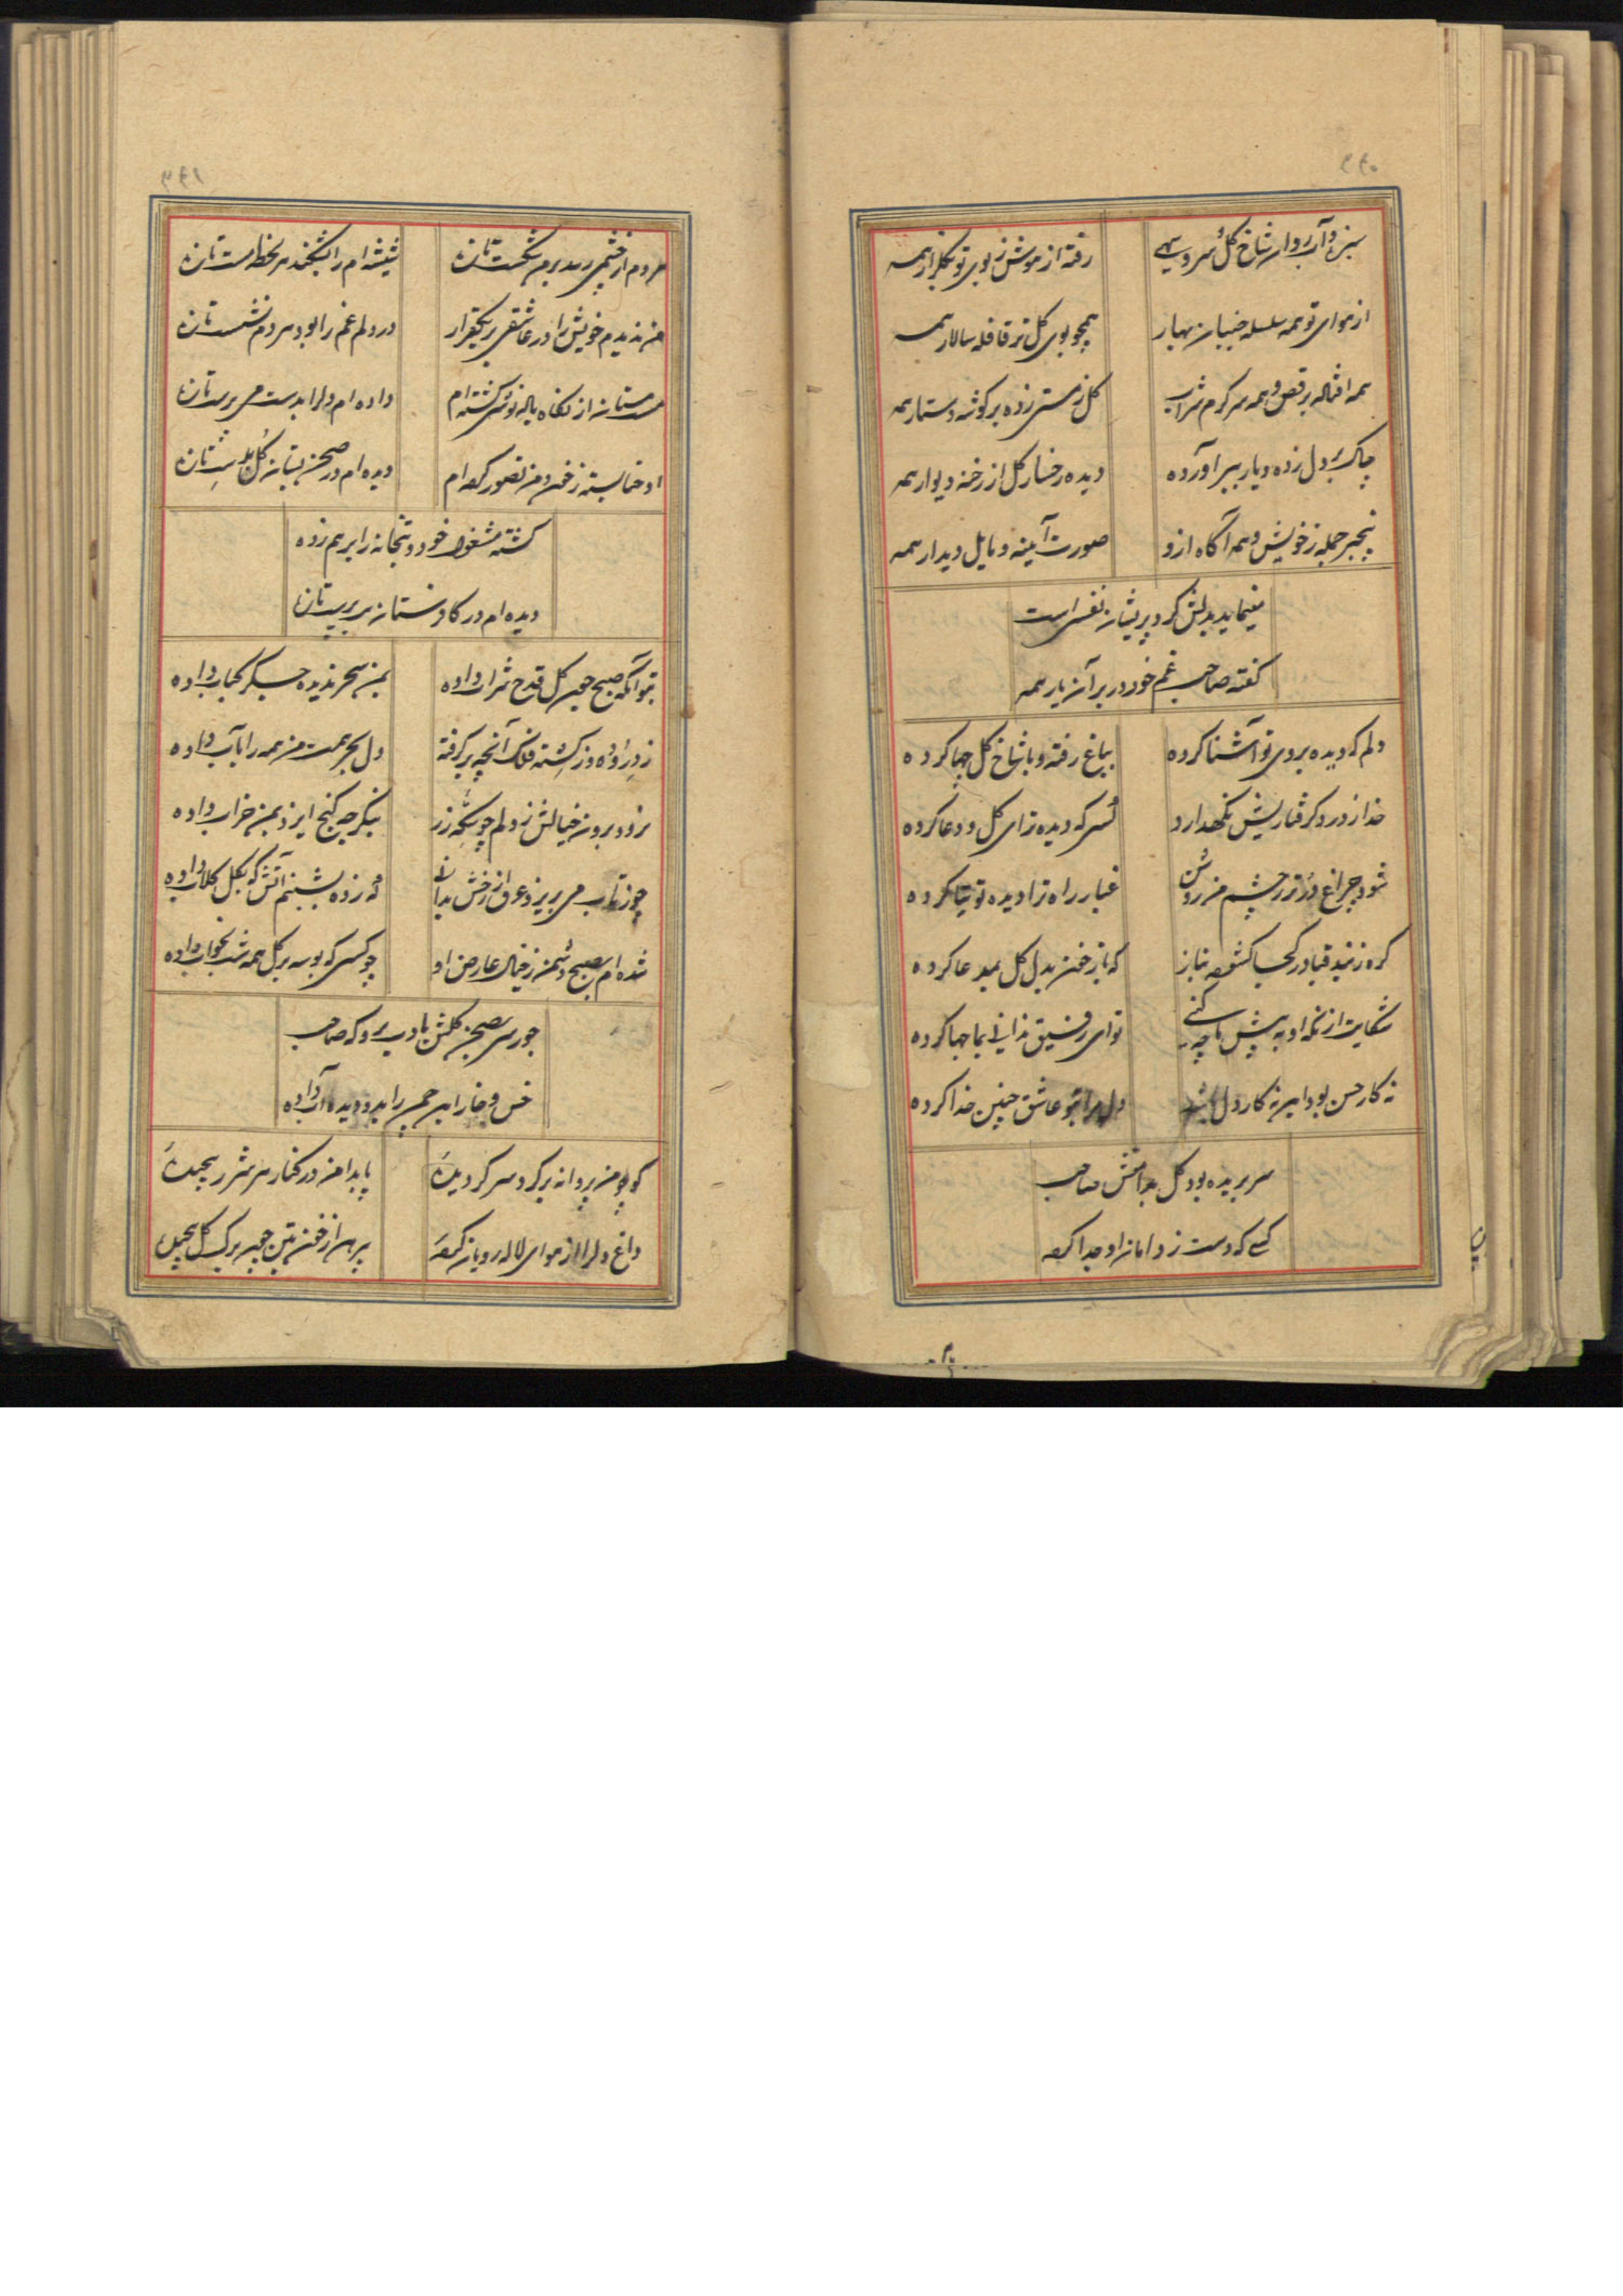 ۳۹۰
سبزه و آب روان شاخ گل و سرو سهی
رفته از هوش ز بوی تو بگلزار همه
از هوای تو همه سلسله جنبان بهار
همچو بوی گل تر قافله سالار همه
همه افتاله برقص و همه سرگرم شراب
گل ز مستی زده بر گوشه دستار همه
چاک بر دل زده و یار ببر آورده
دیده رخسار گل از رخنه دیوار همه
بیخبر جمله ز خویش و همه آگاه ازو
صورت آینه و مایل دیدار همه
مینماید بدلش گرد پریشان نفسی است
گفته صاحب غم خود در بر آن یار همه
دلم که دیده بروی تو آشنا کرده
بباغ رفته و با شاخ گل جها کرده
خدا ز درد گرفتاریش نگهدارد
کسی که دیده ترا ای گل و دعا کرده
شود چراغ دگر در چشم من روشن
غبار راه ترا دیده توتیا کرده
گره ز بند قبا در کجا گشوده بناز
که باز خون بدل گل بمدعا کرده
شکایت از نگه او به پیش ما چه کنی
تو ای رفیق ندانی بما جها کرده
نه کار حسن بود این نه کار دل باشد
دل مرا بتو عاشق چنین خدا کرده
سر بریده بود گل بدامنش صاحب
کسی که دست ز دامان او جدا کرده
۳۹۱
هر دم از چشمی رسد بر من شکست تازه
شیشه ام را بشکند هر لحظه مست تازه
من ندیدم خویش را در عاشقی بر یکقرار
در دلم غم را بود هر دم نشست تازه
مست مستان از نگاه باله نوشی گشته ام
داده ام دل را بدست می پرست تازه
او حنا بسته ز خون من تصور کرده ام
دیده ام در صحن بستان گل بدست تازه
گشته مشغول خود و بتخانه را بر هم زده
دیده ام در کافرستان بت پرست تازه
بتو آنکه صبح چون گل قدح شراب داده
بمن سحر ندیده جگر کباب داده
دل بحر همت من همه را بآب داده
نرود برون خیالش ز دلم چو سکه زر
بنگر چه گنج ایزد بمن خراب داده
چو ز تاب می بریزد عرق از رخش بدانی
که زده بشبنم آتش که بگل گلاب داده
شده ام بصبح دشمن ز خیال عارض او
چو کسی که بوسه بر گل همه شب بخواب داده
چو رسی بصحن گلشن بادب برو که صاحب
خس و خار این چمن را بدو دیده آب داده
کو چو من پروانه بر گرد سر گردیده
پا بدامن در کنار هر شرر پیچیده
داغ دل را از هوای لاله رویان کهنه
پیرهن از خون بتن چون برگ گل پیچیده